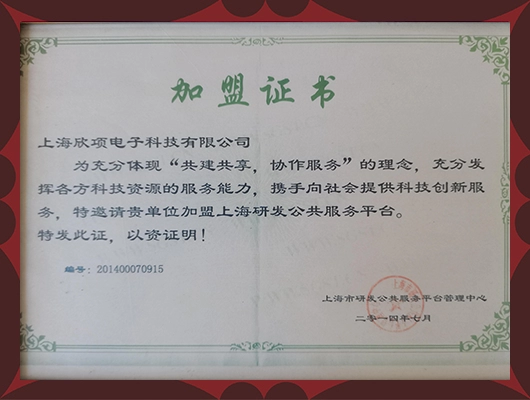 加盟证书
上海欣项电子科技有限公司
为充分体现“共建共享，协作服务”的理念，充分发
挥各方科技资源的服务能力，携手向社会提供科技创新服
务，特邀请贵单位加盟上海研发公共服务平台。
特发此证，以资证明！
编号：201400070915
上海市研发公共服务平台管理中心
二零一四年七月